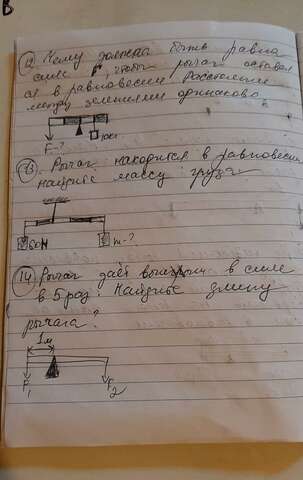 В
12 Чему должна быть равна
силе F, чтобы рычаг оставал
ся в равновесии Расстояния
между делениями одинаково.
F-?
10Н
13. Рычаг находится в равновесии
найдите массу груза
60Н
m-?
14 Рычаг даёт выигрыш в силе
в 5 раз. Найдите длину
рычага?
1м
F1
F2